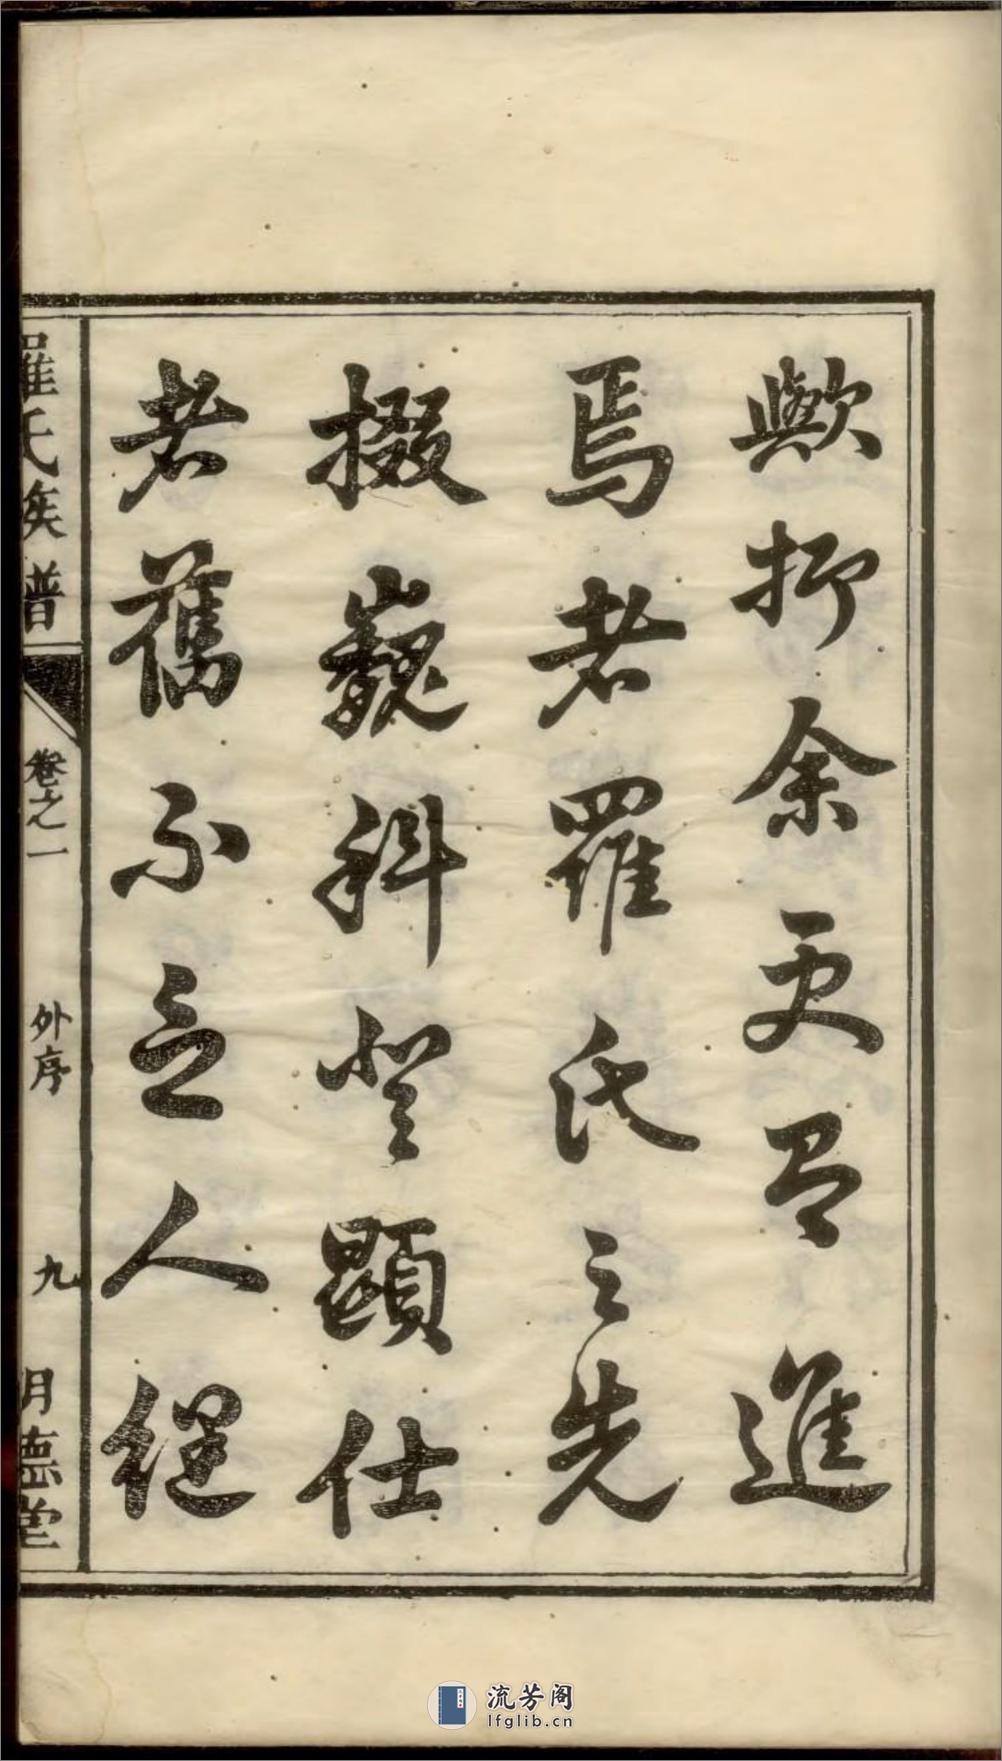 歟抑余更有進
焉者羅氏之先
掇巍科登顯仕
者舊不乏人繼
羅氏族譜
卷之一
外序
九
明德堂
流芳阁
lfglib.cn